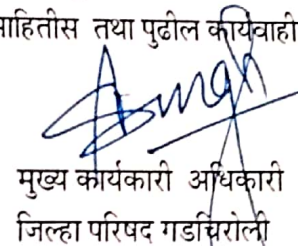 माहितीस तथा पुढील कार्यवाही
मुख्य कार्यकारी अधिकारी
जिल्हा परिषद गडचिरोली